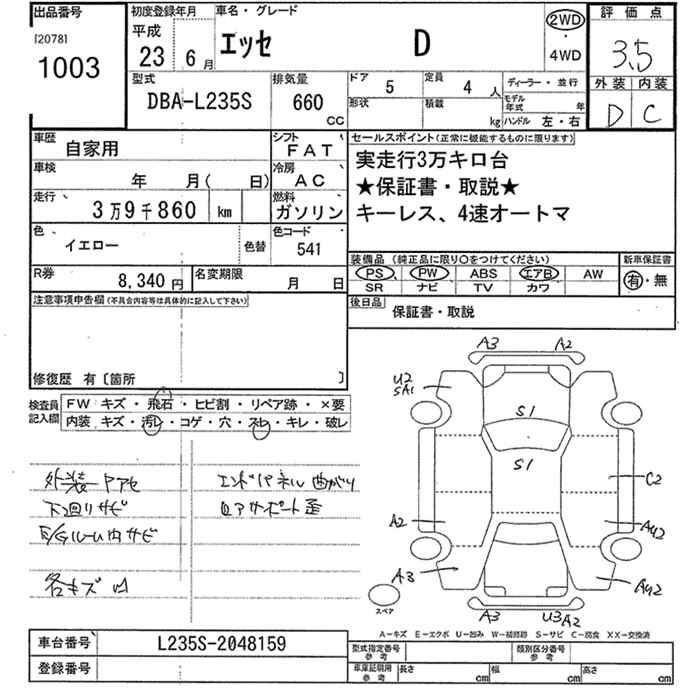 出品番号
[2078]
1003
初度登録年月
平成
23 6月
車名・グレード
エッセ D
2WD
・
4WD
評価点
3.5
外装 内装
D C
型式
DBA-L235S
排気量
660
CC
ドア 5
定員 4人
形状
積載 kg
ディーラー・並行
モデル年式 年
ハンドル 左・右
車歴
自家用
シフト
FAT
車検
年 月( 日)
冷房
AC
走行
3万9千860 km
燃料
ガソリン
色
イエロー
色替
色コード
541
R券
8,340円
名変期限
月 日
セールスポイント(正常に機能するものに限ります)
実走行3万キロ台
★保証書・取説★
キーレス、4速オートマ
装備品(純正品に限り〇をつけてください)
PS PW ABS エアB AW
SR ナビ TV カワ
新車保証書
有・無
後日品
保証書・取説
注意事項申告欄(不具合内容等は具体的に記入して下さい)
修復歴 有〔箇所 〕
検査員記入欄
FW キズ・飛石・ヒビ割・リペア跡・×要
内装 キズ・汚レ・コゲ・穴・スレ・キレ・破レ
外装ヤケアセ
下廻りサビ
E/Gルーム内サビ
各キズ凹
エンドパネル曲がり
コアサポート歪
A3 A2
U2
SA1
S1
S1
C2
A2
AU2
A3
AU2
スペア
A3 U3 A2
A－キズ E－エクボ U－凹み W－補修跡 S－サビ C－腐食 XX－交換済
車台番号
L235S-2048159
登録番号
型式指定番号
参考
類別区分番号
参考
車庫証明用
参考
長さ cm 幅 cm 高さ cm